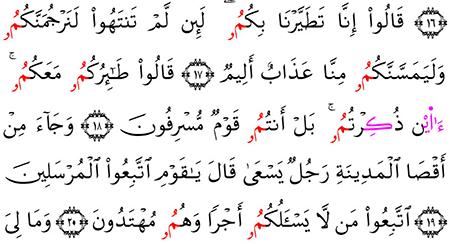 ﴿١٦﴾ قَالُوا إِنَّا تَطَيَّرْنَا بِكُمُۥ ۖ لَئِن لَّمْ تَنتَهُوا لَنَرْجُمَنَّكُمُۥ
وَلَيَمَسَّنَّكُمُۥ مِنَّا عَذَابٌ أَلِيمٌ ﴿١٧﴾ قَالُوا طَٰٓئِرُكُمُۥ مَعَكُمُۥ ۚ
ءَا۬يْن ذُكِرْتُمُۥ ۚ بَلْ أَنتُمُۥ قَوْمٌ مُّسْرِفُونَ ﴿١٨﴾ وَجَآءَ مِنْ
أَقْصَا ٱلْمَدِينَةِ رَجُلٌ يَسْعَىٰ قَالَ يَٰقَوْمِ ٱتَّبِعُوا ٱلْمُرْسَلِينَ
﴿١٩﴾ ٱتَّبِعُوا مَن لَّا يَسْـَٔلُكُمُۥ أَجْرًا وَهُمُۥ مُهْتَدُونَ ﴿٢٠﴾ وَمَا لِىَ